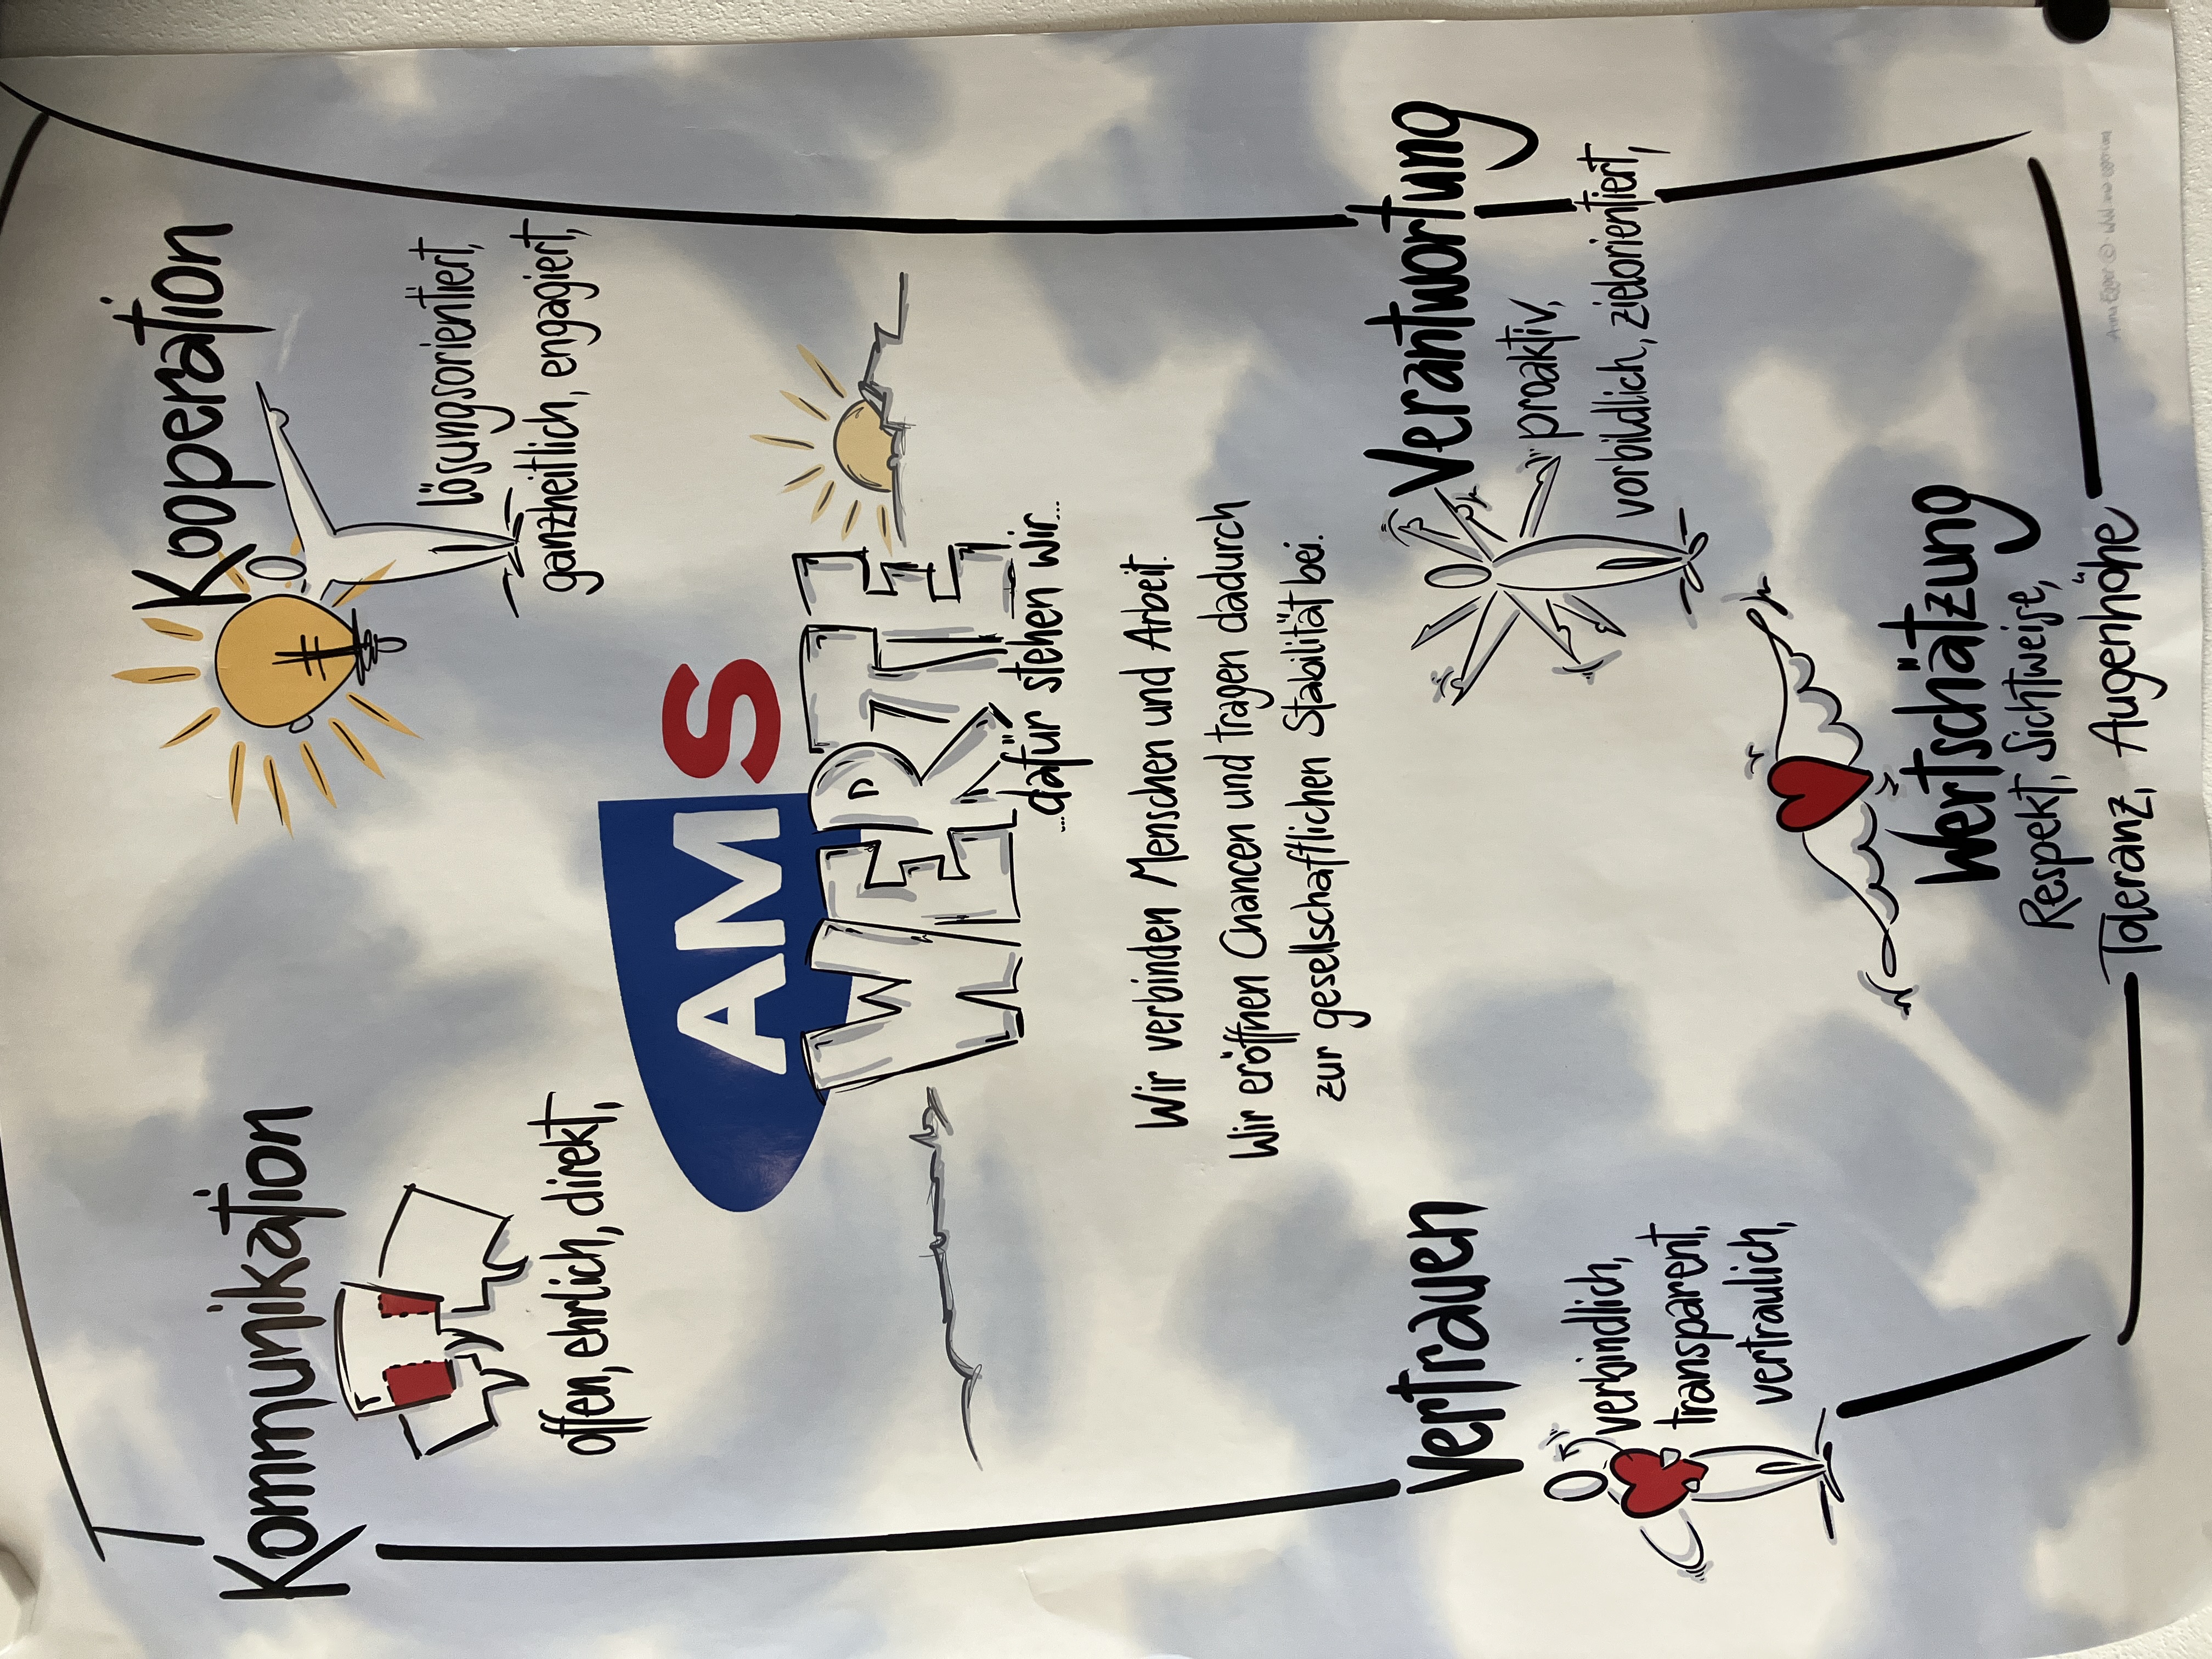 Kommunikation
offen, ehrlich, direkt,
Kooperation
lösungsorientiert,
ganzheitlich, engagiert,
AMS
WERTE
...dafür stehen wir...
Wir verbinden Menschen und Arbeit.
Wir eröffnen Chancen und tragen dadurch
zur gesellschaftlichen Stabilität bei.
Vertrauen
verbindlich,
transparent,
vertraulich,
Verantwortung
proaktiv,
vorbildlich, zielorientiert,
Wertschätzung
Respekt, Sichtweise,
Toleranz, Augenhöhe
Anna Egger ©